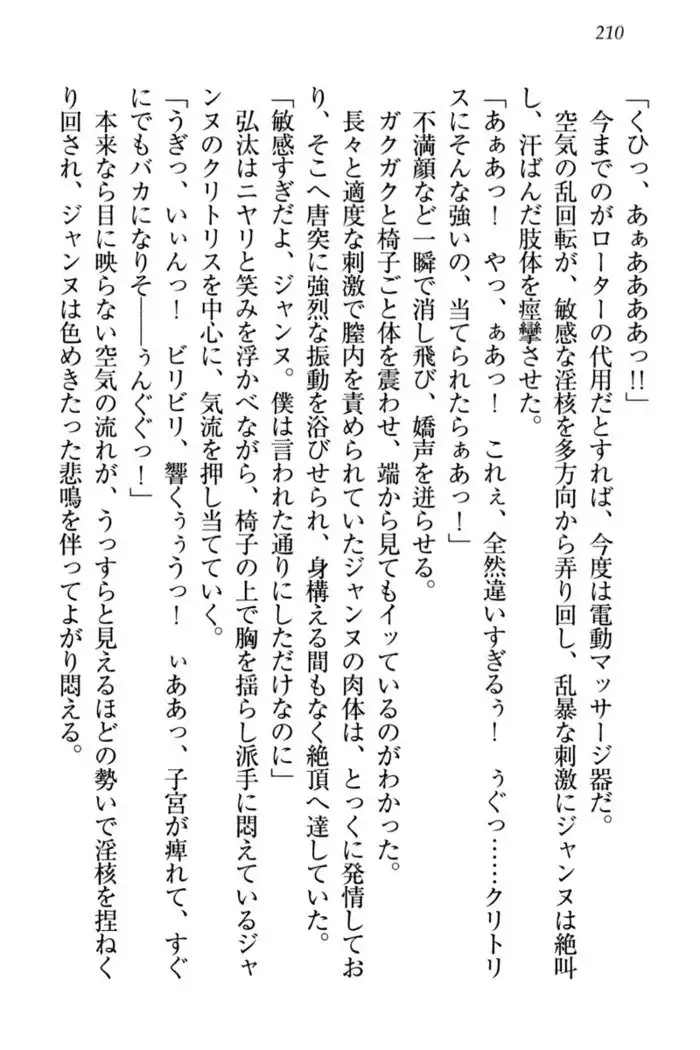 210
「くひっ、あぁああああっ!!」
今までのがローターの代用だとすれば、今度は電動マッサージ器だ。
空気の乱回転が、敏感な淫核を多方向から弄り回し、乱暴な刺激にジャンヌは絶叫
し、汗ばんだ肢体を痙攣させた。
「あぁあっ！　やっ、ぁあっ！　これぇ、全然違いすぎるぅ！　ぅぐっ……クリトリ
スにそんな強いの、当てられたらぁあっ！」
不満顔など一瞬で消し飛び、嬌声を迸らせる。
ガクガクと椅子ごと体を震わせ、端から見てもイッているのがわかった。
長々と適度な刺激で膣内を責められていたジャンヌの肉体は、とっくに発情してお
り、そこへ唐突に強烈な振動を浴びせられ、身構える間もなく絶頂へ達していた。
「敏感すぎだよ、ジャンヌ。僕は言われた通りにしただけなのに」
弘汰はニヤリと笑みを浮かべながら、椅子の上で胸を揺らし派手に悶えているジャ
ンヌのクリトリスを中心に、気流を押し当てていく。
「うぎっ、いぃんっ！　ビリビリ、響くぅぅうっ！　ぃああっ、子宮が痺れて、すぐ
にでもバカになりそ――ぅんぐぐっ！」
本来なら目に映らない空気の流れが、うっすらと見えるほどの勢いで淫核を捏ねく
り回され、ジャンヌは色めきたった悲鳴を伴ってよがり悶える。